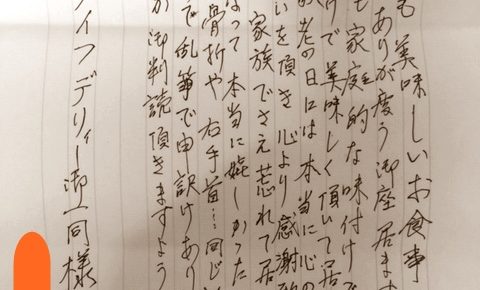 も美味しいお食事
ありが度う御座居ます
も家庭的な味付けで
けで美味しく頂いて居
老の日には本当に心の
いを頂き心より感謝致
家族でさえ忘れて居
なって本当に嬉しかった
骨折や右手首…同じ
で乱筆で申訳けあり
が御判読頂きますよう
イフデリィー御一同様